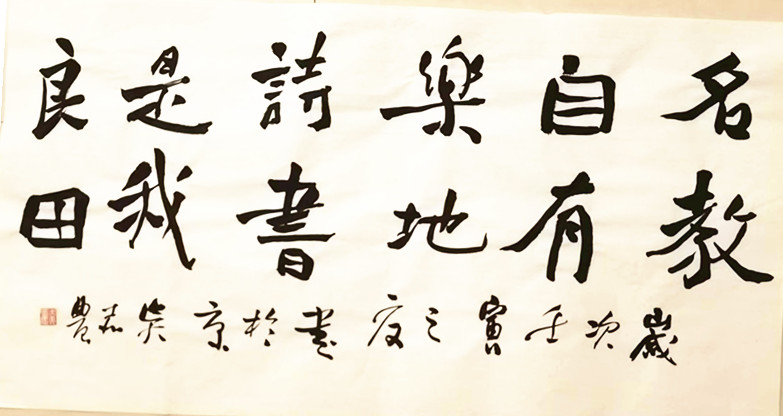 名教
自有
樂地
詩書
是我
良田
歲次壬寅之夏書於京吳豐